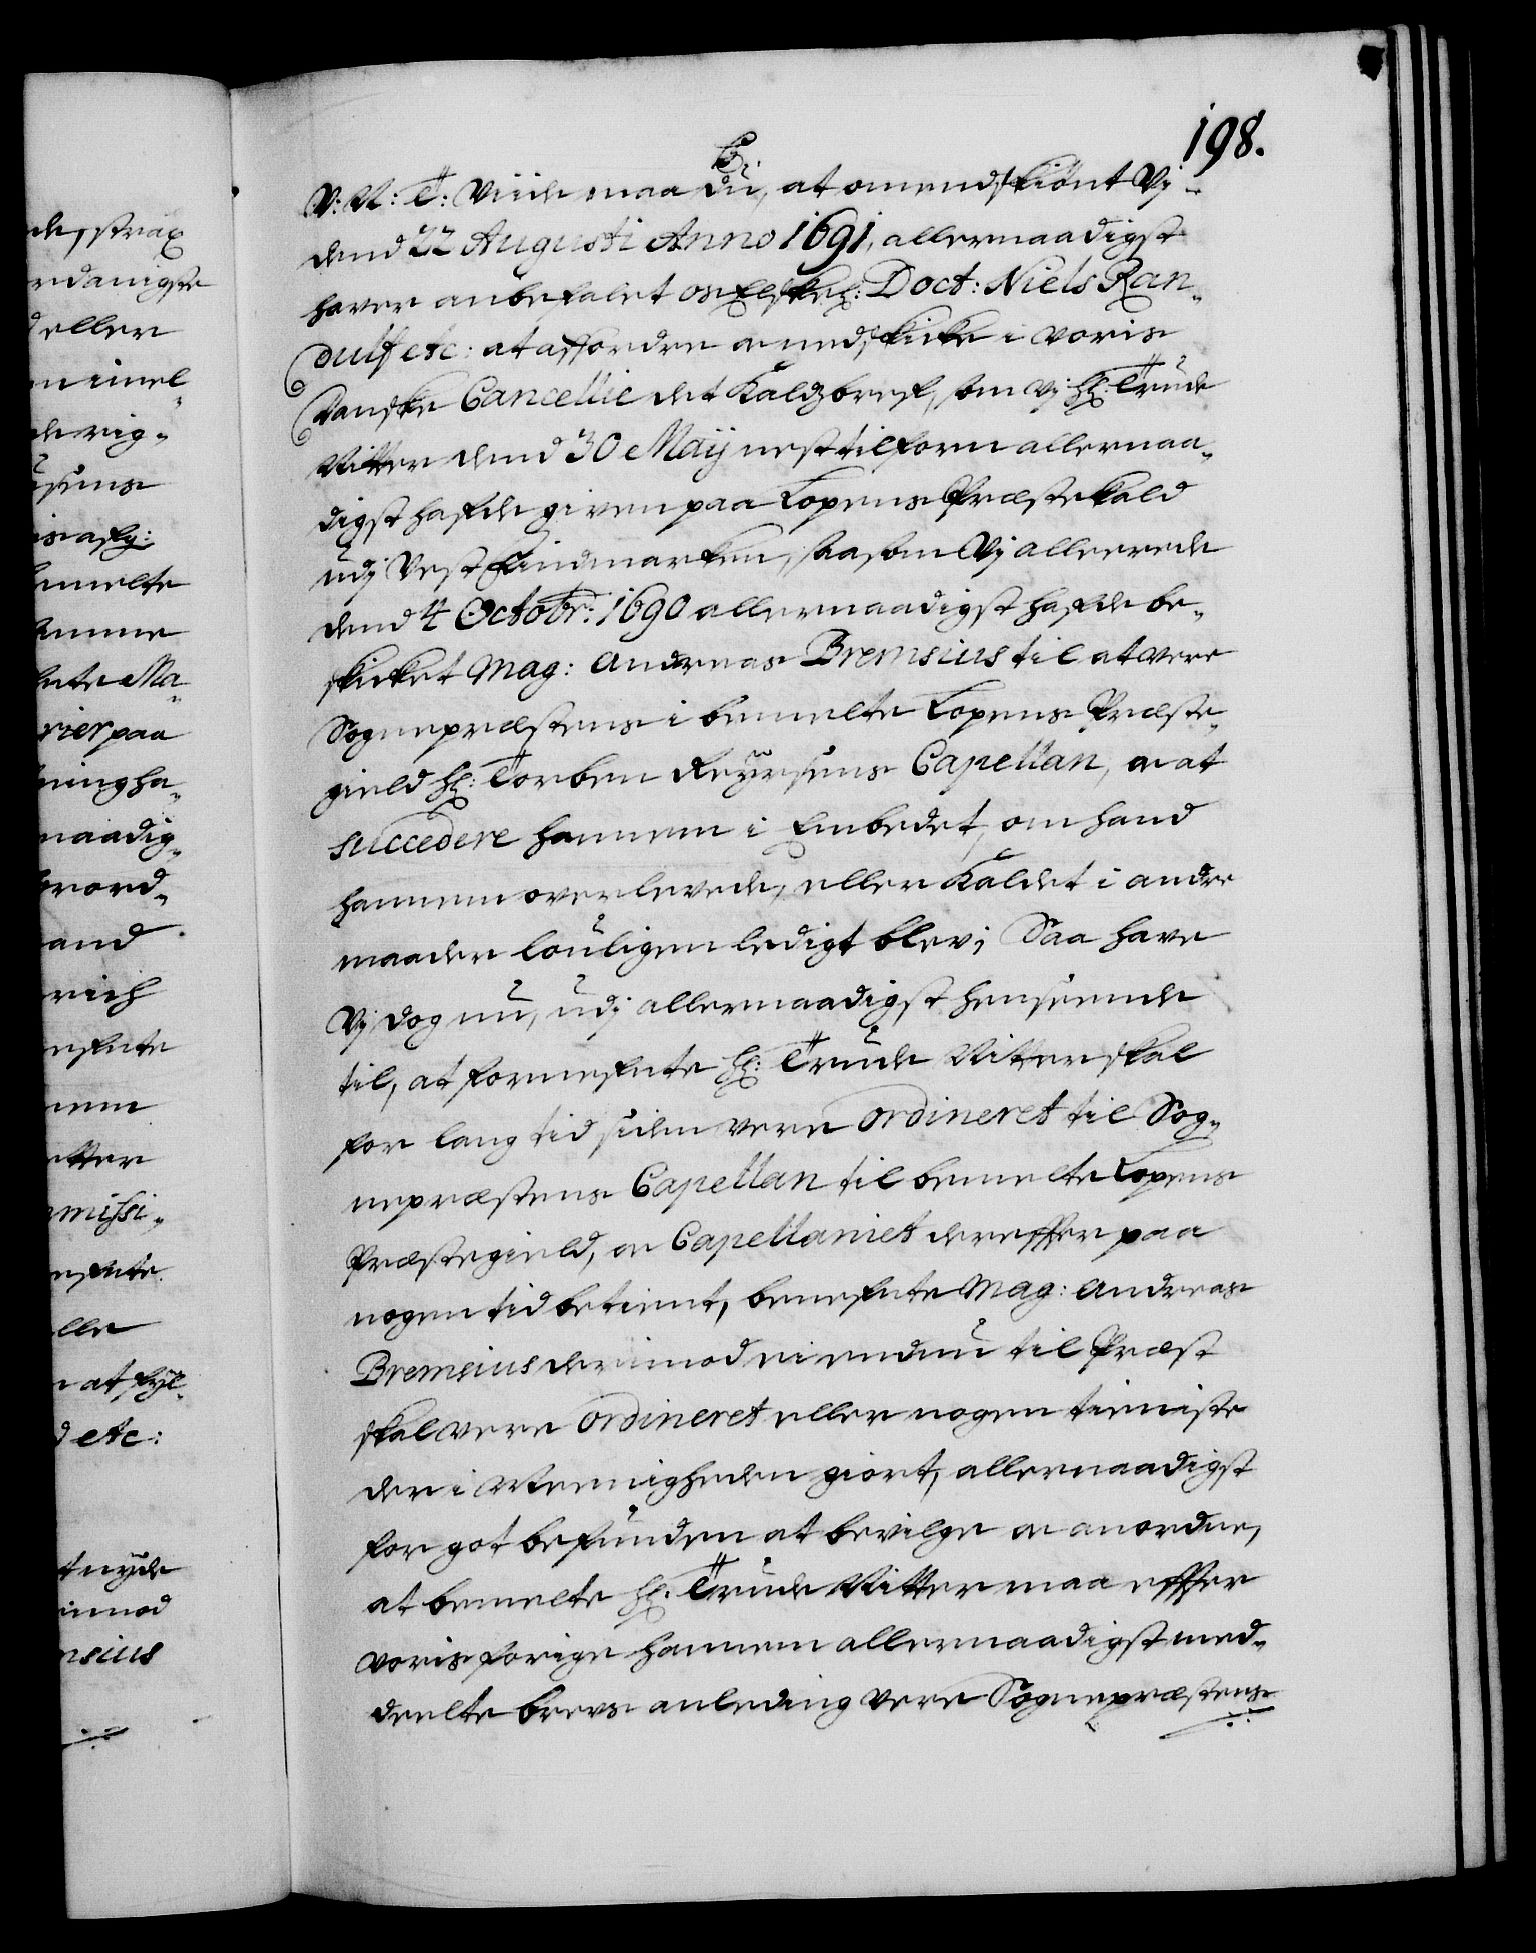 198.
V: V: T: Viide maa du, at omendskiønt Vj
dend 22 Augusti Anno 1691, allernaadigst
hafver anbefalet os Elskel: Doct: Niels Ran-
dulf etc: at affordre oc nedskicke i voris
Danske Cancellie det Kaldsbref, som vj Hr: Trude
Nitter dend 30 Maij nest tilforn allernaa-
digst hafde given paa Loppens Præstekald
udj Vest Findmarken, saasom Vj allereede
dend 4 Octobr: 1690 allernaadigst hafde be-
skicket Mag: Andreas Bremsius til at vere
Sognepræstens i bemelte Loppens Præste-
gield Hr: Torben Reyersens Capellan, oc at
succedere hannem i Embedet, om hand
hannem overlevede, eller Kaldet i andre
maader louligen ledigt blev; Saa have
Vj dog nu, udj allernaadigst henseende
til, at formelte Hr: Trude Nitter skal
for lang tid siden vere ordineret til Sog-
nepræstens Capellan til bemelte Loppens
Præstegield, oc Capellaniet derefter paa
nogen tid betient, benefnte Mag: Andreas
Bremsius derimod ei endnu til Præst
skal vere ordineret eller nogen tieniste
der i Meenigheden giort, allernaadigst
for got befunden at bevilge oc anordne,
at bemelte Hr: Trude Nitter maa efter
voris forige hannem allernaadigst med-
deelte brevs anleding vere Sognepræstens